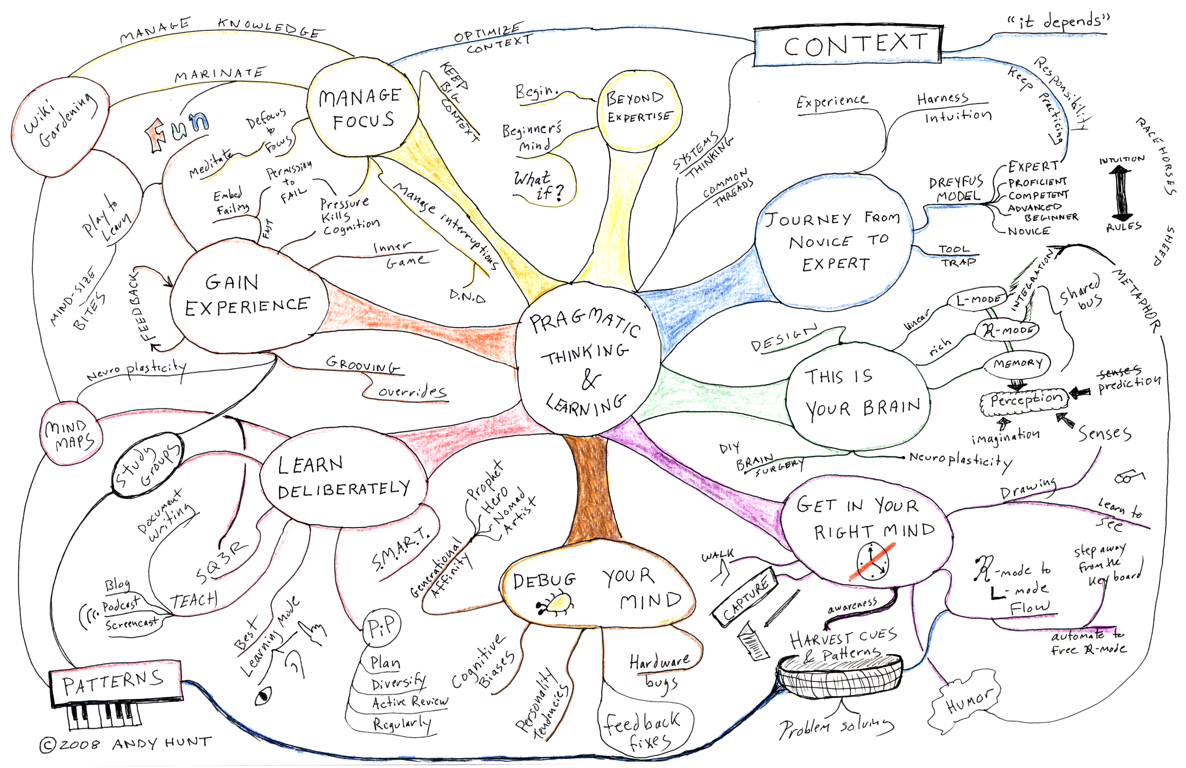 MANAGE KNOWLEDGE
MARINATE
Wiki
Gardening
OPTIMIZE
CONTEXT
CONTEXT
"it depends"
Responsibility
Keep Practicing
MANAGE
FOCUS
KEEP
BIG
CONTEXT
Fun
Defocus
to
Focus
Meditate
Manage interruptions
D.N.D
BEYOND
EXPERTISE
Begin.
Beginner's
Mind
What
if?
SYSTEMS
THINKING
COMMON
THREADS
Experience
Harness
Intuition
JOURNEY FROM
NOVICE TO
EXPERT
DREYFUS
MODEL
EXPERT
PROFICIENT
COMPETENT
ADVANCED
BEGINNER
NOVICE
INTUITION
RULES
RACEHORSES
SHEEP
TOOL
TRAP
Play to
Learn
MIND-SIZE
BITES
Embed
Failing
FAST
Permission
to
FAIL
Pressure
Kills
Cognition
Inner
Game
GAIN
EXPERIENCE
FEEDBACK
GROOVING
overrides
Neuroplasticity
PRAGMATIC
THINKING
&
LEARNING
DESIGN
THIS IS
YOUR BRAIN
linear
L-MODE
rich
R-MODE
INTEGRATION
METAPHOR
Shared
bus
MEMORY
Perception
senses
prediction
imagination
Senses
DIY
BRAIN
SURGERY
Neuroplasticity
MIND
MAPS
Study
Groups
LEARN
DELIBERATELY
Document
Writing
SQ3R
TEACH
Blog
Podcast
Screencast
Best
Learning Mode
PiP
Plan
Diversify
Active Review
Regularly
S.M.A.R.T.
Generational
Affinity
Prophet
Hero
Nomad
Artist
DEBUG YOUR
MIND
Cognitive
Biases
Personality
tendencies
feedback
fixes
Hardware
bugs
GET IN YOUR
RIGHT MIND
Drawing
Learn to
see
WALK
CAPTURE
awareness
HARVEST CUES
& Patterns
Problem solving
R-mode to
L-mode
Flow
step away
from the
keyboard
automate to
free R-mode
HUMOR
PATTERNS
©2008 ANDY HUNT